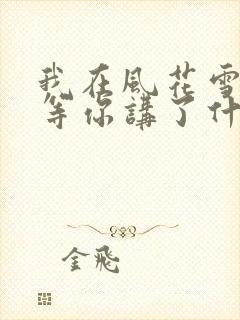 我在風花雪
等你講了什
金飛